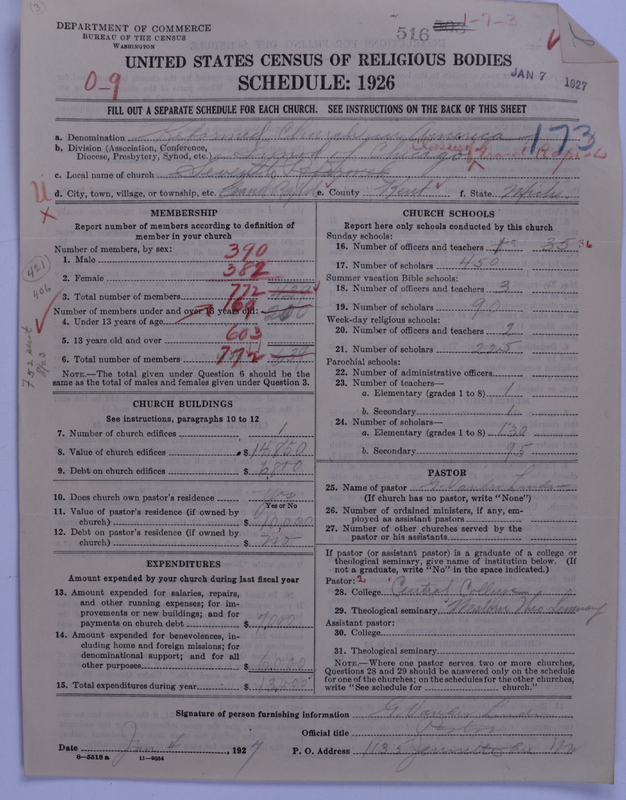 DEPARTMENT OF COMMERCE
BUREAU OF THE CENSUS
WASHINGTON
516
1-7-3
UNITED STATES CENSUS OF RELIGIOUS BODIES
SCHEDULE: 1926
JAN 7 1927
0-9
FILL OUT A SEPARATE SCHEDULE FOR EACH CHURCH. SEE INSTRUCTIONS ON THE BACK OF THIS SHEET
173
a. Denomination Reformed Church in America
b. Division (Association, Conference,
Diocese, Presbytery, Synod, etc.) Synod of Chicago Classis of Grand Rapids
c. Local name of church Seventh Reformed
d. City, town, village, or township, etc. Grand Rapids e. County Kent f. State Mich.
MEMBERSHIP
Report number of members according to definition of
member in your church
Number of members, by sex:
1. Male 390
2. Female 382
3. Total number of members 772
Number of members under and over 13 years old:
4. Under 13 years of age 169
5. 13 years old and over 603
6. Total number of members 772
NOTE.—The total given under Question 6 should be the
same as the total of males and females given under Question 3.
CHURCH BUILDINGS
See instructions, paragraphs 10 to 12
7. Number of church edifices 1
8. Value of church edifices $ 14,850
9. Debt on church edifices $ 6,800
10. Does church own pastor's residence yes
Yes or No
11. Value of pastor's residence (if owned by
church) $ 10,000
12. Debt on pastor's residence (if owned by
church) $
EXPENDITURES
Amount expended by your church during last fiscal year
13. Amount expended for salaries, repairs,
and other running expenses; for im-
provements or new buildings; and for
payments on church debt $ 7,000
14. Amount expended for benevolences, in-
cluding home and foreign missions; for
denominational support; and for all
other purposes $ 6,000
15. Total expenditures during year $ 13,000
CHURCH SCHOOLS
Report here only schools conducted by this church
Sunday schools:
16. Number of officers and teachers 35 36
17. Number of scholars 450
Summer vacation Bible schools:
18. Number of officers and teachers 3
19. Number of scholars 90
Week-day religious schools:
20. Number of officers and teachers 2
21. Number of scholars 225
Parochial schools:
22. Number of administrative officers
23. Number of teachers—
a. Elementary (grades 1 to 8) 1
b. Secondary 1
24. Number of scholars—
a. Elementary (grades 1 to 8) 130
b. Secondary 95
PASTOR
25. Name of pastor G. Vander Linden
(If church has no pastor, write "None")
26. Number of ordained ministers, if any, em-
ployed as assistant pastors
27. Number of other churches served by the
pastor or his assistants
If pastor (or assistant pastor) is a graduate of a college or
theological seminary, give name of institution below. (If
not a graduate, write "No" in the space indicated.)
Pastor: 2
28. College Central College
29. Theological seminary Western Theo Seminary
Assistant pastor:
30. College
31. Theological seminary
NOTE.—Where one pastor serves two or more churches,
Questions 28 and 29 should be answered only on the schedule
for one of the churches; on the schedules for the other churches,
write "See schedule for church."
Signature of person furnishing information G. Vander Linden
Official title Pastor
Date Jan 4, 1927 P. O. Address 1135
8-5518a 11-9034